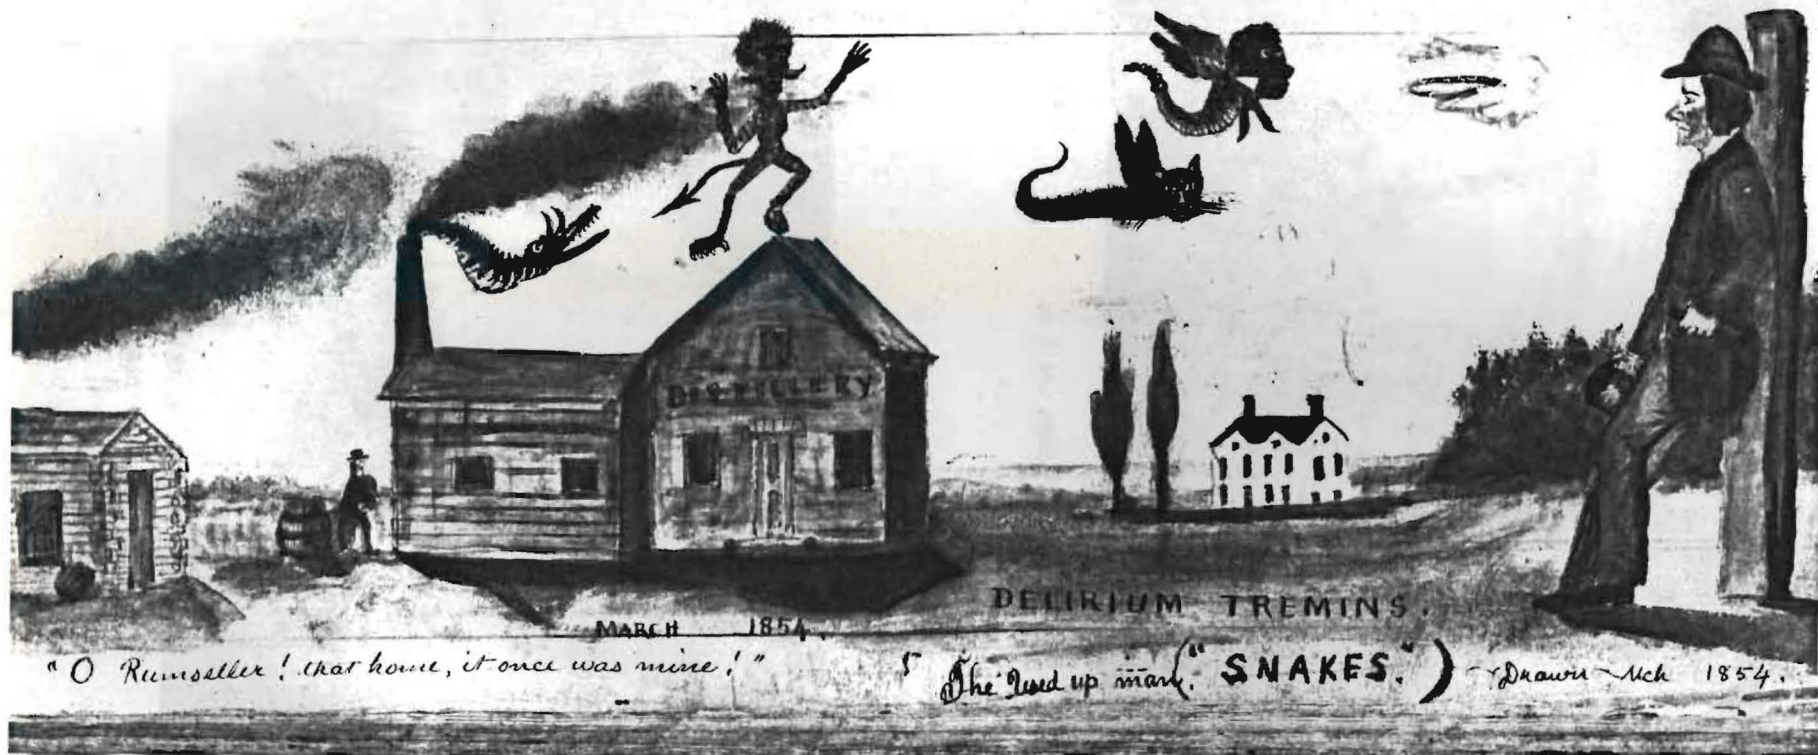 DISTILLERY
DELIRIUM TREMINS.
MARCH 1854.
"O Rumseller! that home, it once was mine!"
The Used up man. ("SNAKES.") Drawn Mch 1854.